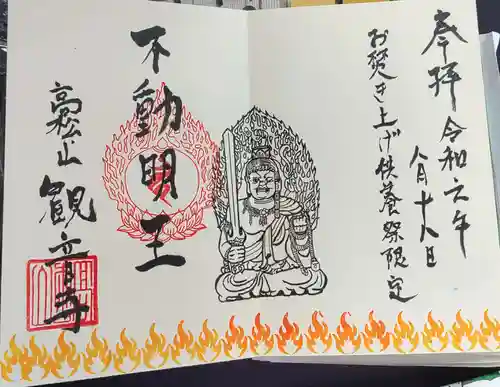 奉拝 令和六年
八月十八日
お焚き上げ供養祭限定
不動明王
高松山 観音寺